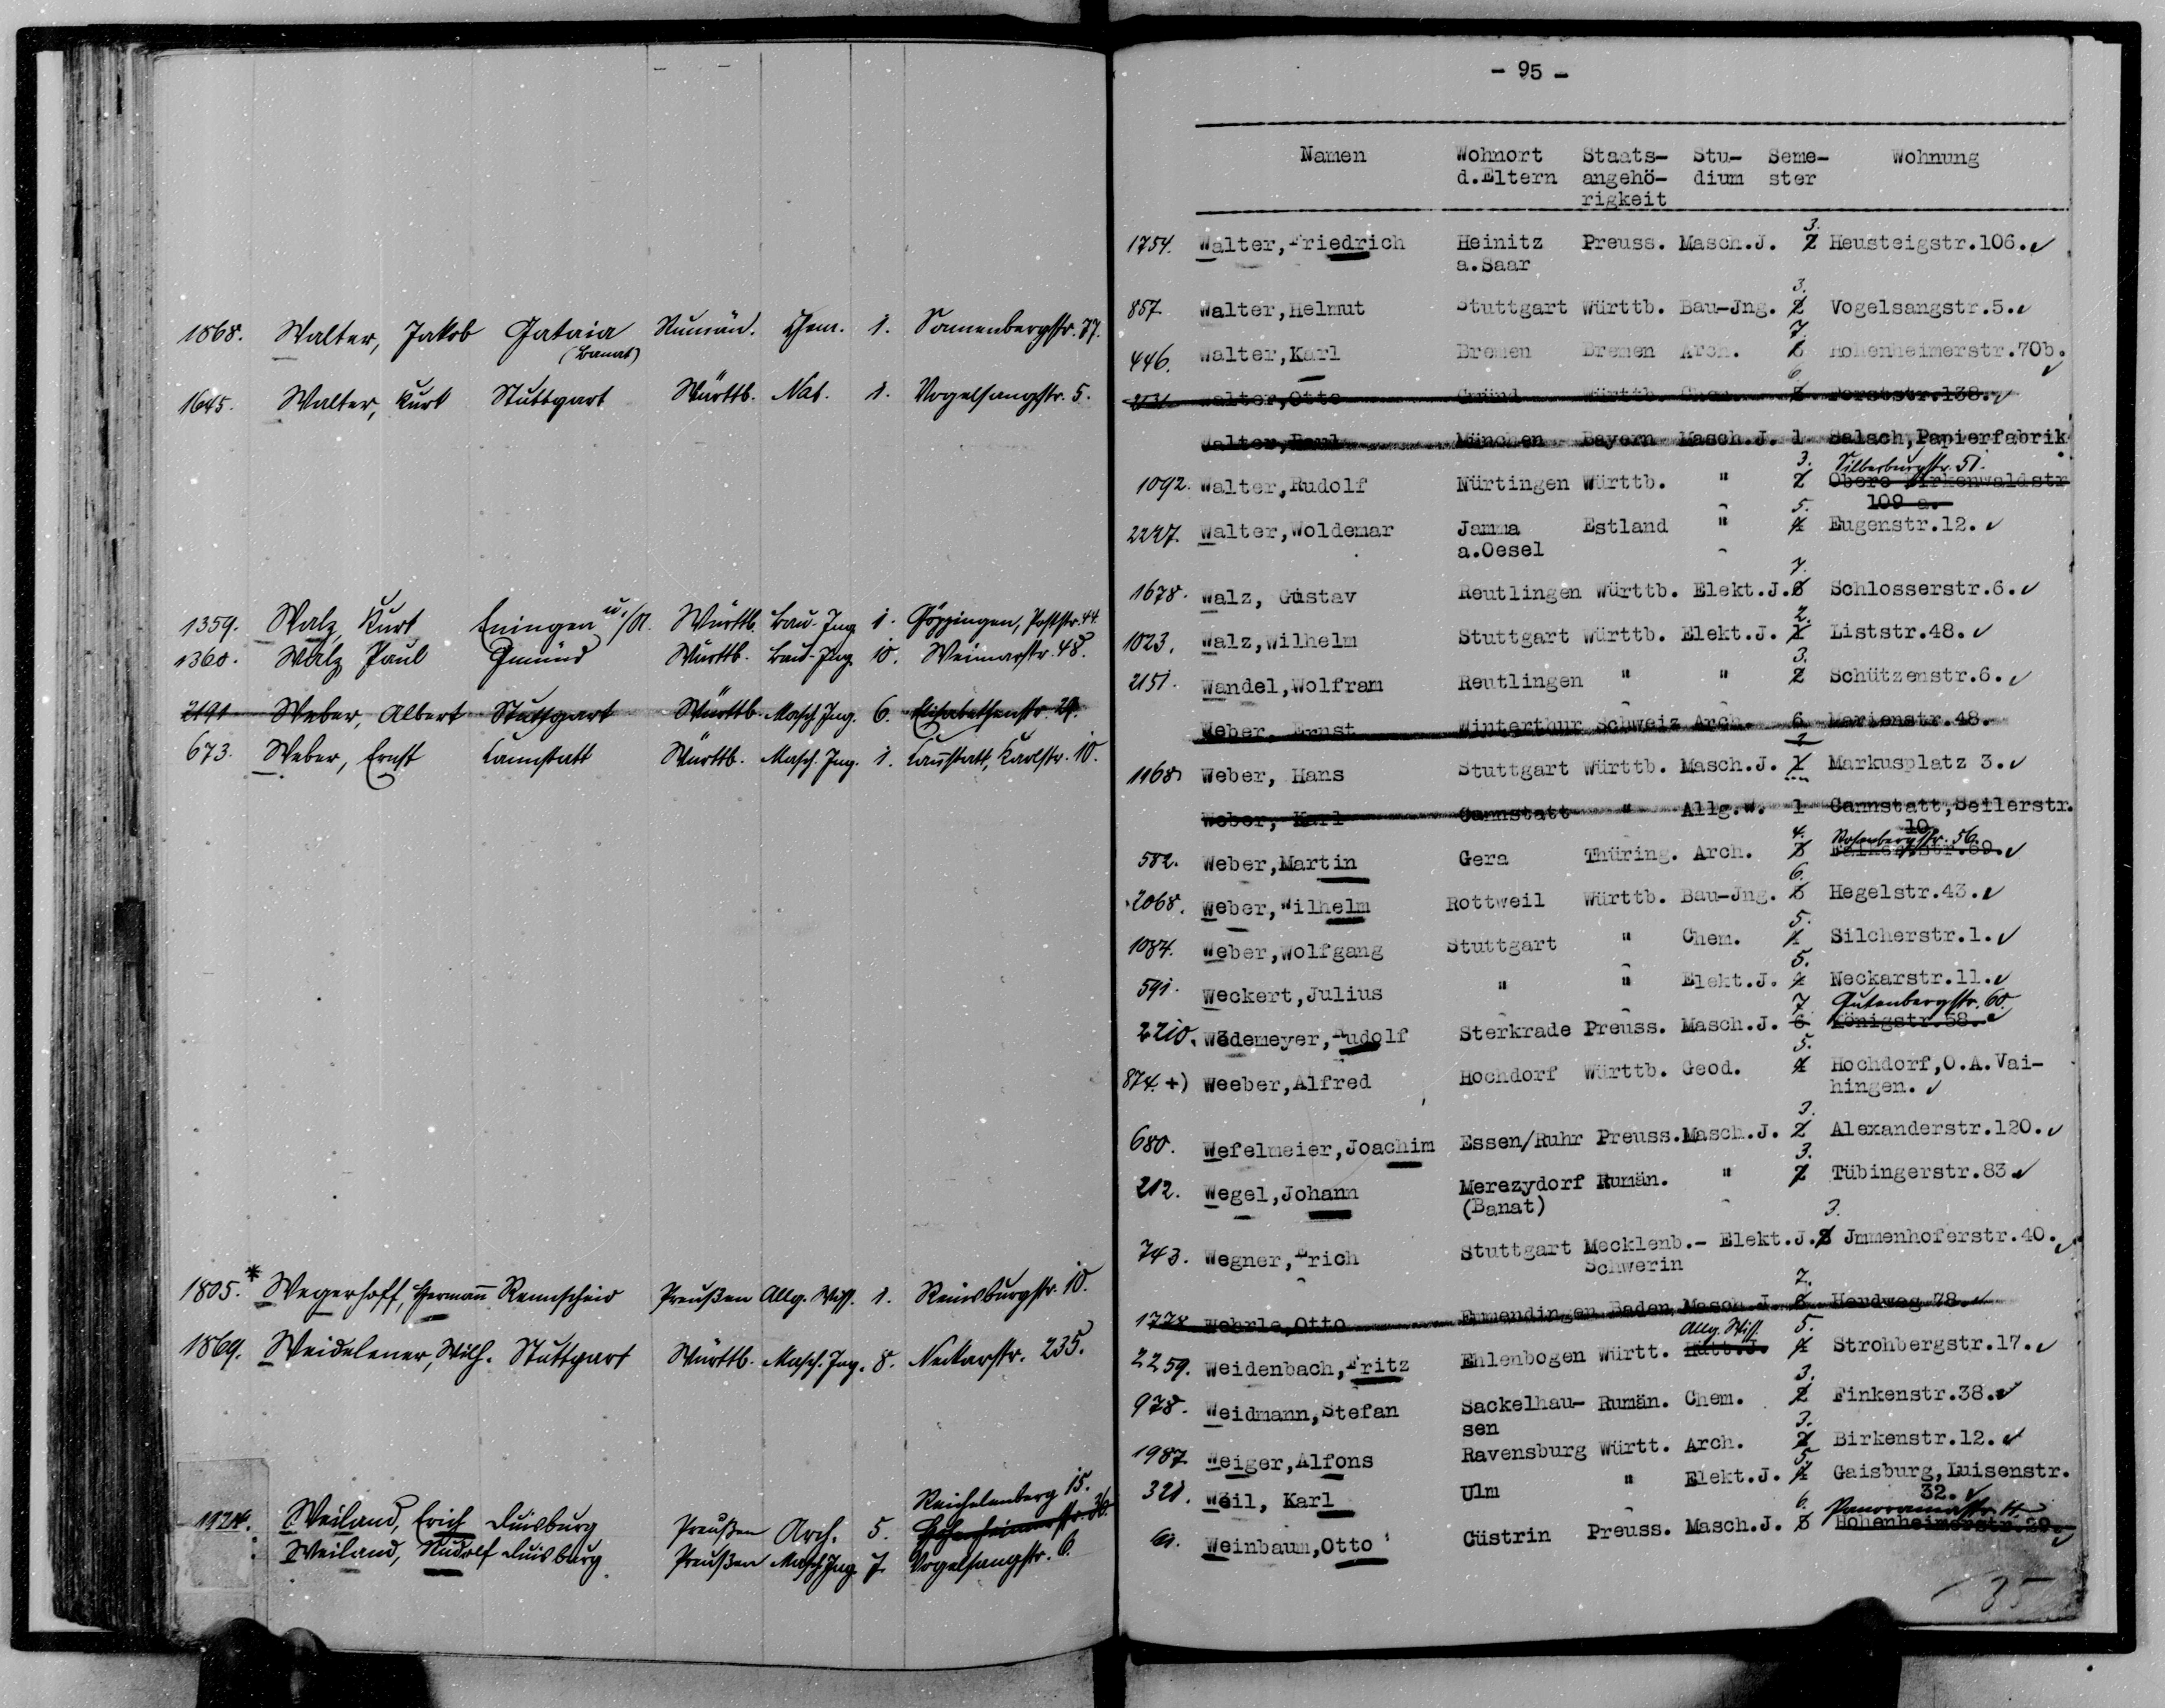 1868. Walter, Jakob Gataia Rumän. Chem. 1. Sonnenbergstr. 77.
(Banat)
1645. Walter, Kurt Stuttgart Württb. Nat. 1. Vogelsangstr. 5.
1359. Walz, Kurt Eningen u/A. Württb. Bau-Ing. 1. Göppingen, Poststr. 44.
1360. Walz Paul Gmünd Württb. Bau-Ing. 10. Weimarstr. 48.
2191 Weber, Albert Stuttgart Württb. Masch.Ing. 6. Elisabethenstr. 29.
673. Weber, Ernst Cannstatt Württb. Masch. Ing. 1. Cannstatt, Karlstr. 10.
1805.* Wegerhoff, Hermann Remscheid Preußen Allg. Wiss. 1. Reinsburgstr. 10.
1869. Weidelener, Wilh. Stuttgart Württb. Masch. Ing. 8. Neckarstr. 235.
Reichelenberg 15.
1924. Weiland, Erich Duisburg Preußen Arch. 5. Hohenheimerstr. 36
Weiland, Rudolf Duisburg Preußen Masch.Ing. 7. Vogelsangstr. 6.
- 95 -
Namen Wohnort Staats- Stu- Seme- Wohnung
d.Eltern angehö- dium ster
rigkeit
3.
1754. Walter,Friedrich Heinitz Preuss. Masch.J. 2 Heusteigstr.106.✓
a.Saar
3.
857 Walter,Helmut Stuttgart Württb. Bau-Jng. 2 Vogelsangstr.5.✓
7.
446. Walter,Karl Bremen Bremen Arch. 6 Hohenheimerstr.70b.✓
6.
Walter,Otto Gmünd Württb. Chem. 5 Forststr.138.✓
Walter,Paul München Bayern Masch.J. 1 Salach,Papierfabrik.
3. Silberburgstr. 51.
1092. Walter,Rudolf Nürtingen Württb. " 2 Obere Birkenwaldstr
109 a.
5.
2247. Walter,Woldemar Jamma Estland " 4 Eugenstr.12. ✓
a.Oesel
7.
1678. Walz, Gustav Reutlingen Württb. Elekt.J. 6 Schlosserstr.6.✓
2.
1023. Walz,Wilhelm Stuttgart Württb. Elekt.J. 1 Liststr.48. ✓
3.
2151. Wandel,Wolfram Reutlingen " " 2 Schützenstr.6.✓
Weber, Ernst Winterthur Schweiz Arch. 6 Marienstr.48.
2
1168 Weber, Hans Stuttgart Württb. Masch.J. 1 Markusplatz 3.✓
Weber, Karl Cannstatt " Allg.W. 1 Cannstatt,Seilerstr.
10.
4. Rosenbergstr. 56.
582. Weber,Martin Gera Thüring. Arch. 3 Falkertstr.69.✓
6.
2068. Weber,Wilhelm Rottweil Württb. Bau-Jng. 5 Hegelstr.43.✓
5.
1084. Weber,Wolfgang Stuttgart " Chem. 4 Silcherstr.1.✓
5.
591. Weckert,Julius " " Elekt.J. 4 Neckarstr.11.✓
7 Gutenbergstr. 60.
2210. Wedemeyer,Rudolf Sterkrade Preuss. Masch.J. 6 Königstr.58.✓
5.
874. +) Weeber,Alfred Hochdorf Württb. Geod. 4 Hochdorf,O.A.Vai-
hingen. ✓
3.
680. Wefelmeier,Joachim Essen/Ruhr Preuss.Masch.J. 2 Alexanderstr.120.✓
3.
212. Wegel,Johann Merezydorf Rumän. " 2 Tübingerstr.83✓
(Banat)
3.
743. Wegner,Erich Stuttgart Mecklenb.- Elekt.J. 2 Jmmenhoferstr.40.✓
Schwerin
7.
1778 Wehrle,Otto Emmendingen Baden Masch.J. 6 Herdweg 78.✓
Allg. Wiss. 5.
2259. Weidenbach,Fritz Ehlenbogen Württ. Hütt.J. 4 Strohbergstr.17.✓
3.
978. Weidmann,Stefan Sackelhau- Rumän. Chem. 2 Finkenstr.38.✓
sen
3.
1987 Weiger,Alfons Ravensburg Württ. Arch. 2 Birkenstr.12.✓
5.
321. Weil, Karl Ulm " Elekt.J. 4 Gaisburg,Luisenstr.
32. ✓
6. Panoramastr.
61. Weinbaum,Otto Cüstrin Preuss. Masch.J. 5 Hohenheimerstr.29.✓
35